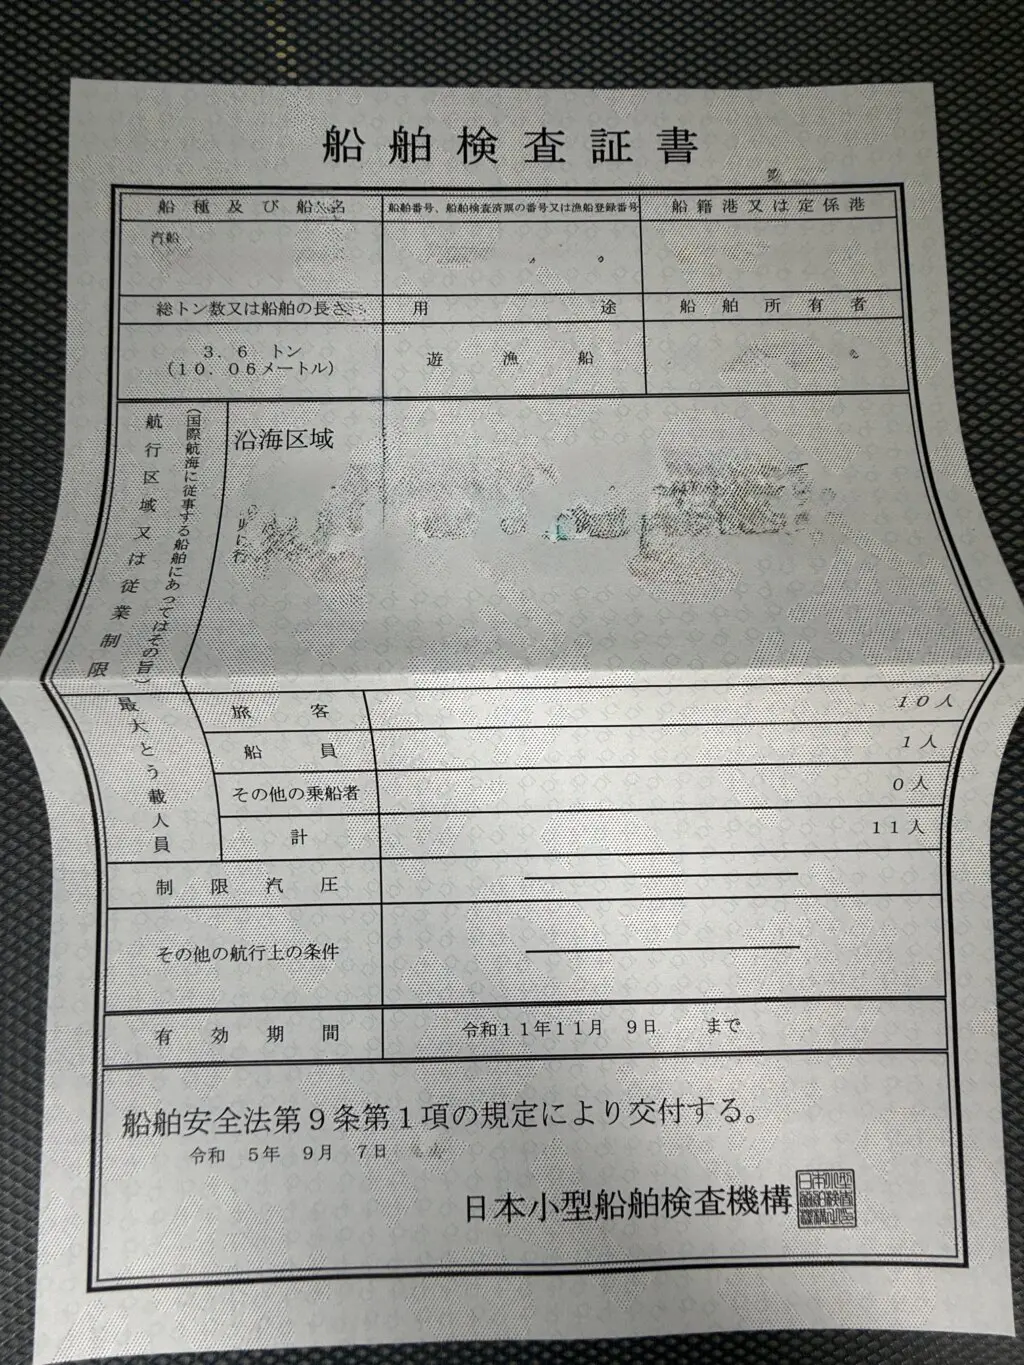 船舶検査証書
船種及び船名
船舶番号、船舶検査済票の番号又は漁船登録番号
船籍港又は定係港
汽船
総トン数又は船舶の長さ
用途
船舶所有者
3.6 トン
(10.06メートル)
遊漁船
航行区域又は従業制限
(国際航海に従事する船舶にあってはその旨)
沿海区域
最大とう載人員
旅客 10人
船員 1人
その他の乗船者 0人
計 11人
制限汽圧
その他の航行上の条件
有効期間
令和11年11月 9日 まで
船舶安全法第9条第1項の規定により交付する。
令和 5年 9月 7日
日本小型船舶検査機構